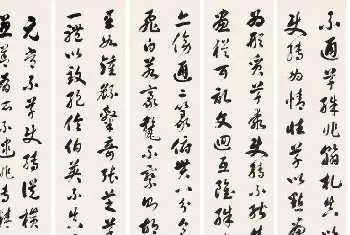 不通草殊非翰札真以
使轉為情性草以點畫
為形質草乖使轉不能
畫猶可記文回互雖殊
亦傍通二篆俯貫八分
飛白若毫釐不察則胡
至如鍾繇隸奇張芝草
一體以致絕倫伯英不真
元常不草使轉縱橫
兼善者有所不逮非專精